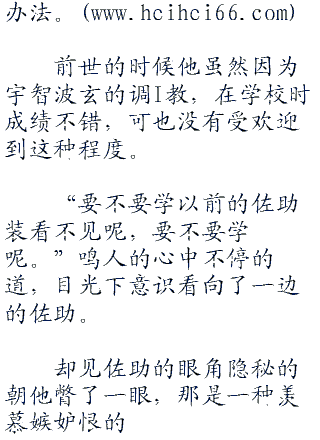 办法。(www.hcihci66.com)
前世的时候他虽然因为
宇智波玄的调I教，在学校时
成绩不错，可也没有受欢迎
到这种程度。
“要不要学以前的佐助
装看不见呢，要不要学
呢。”鸣人的心中不停的
道，目光下意识看向了一边
的佐助。
却见佐助的眼角隐秘的
朝他瞥了一眼，那是一种羡
慕嫉妒恨的